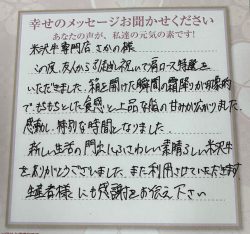 幸せのメッセージお聞かせください
あなたの声が、私達の元気の素です!
米沢牛専門店 さかの様
この度、友人から引越し祝いで肩ロース特選を
いただきました。箱を開けた瞬間の霜降りが芸術的
で、もちもちとした食感と上品な脂の甘みが広がりました。
感動し、特別な時間となりました。
新しい生活の門出にふさわしい素晴らしい米沢牛
をありがとうございました。また利用させていただきます
生産者様にも感謝をお伝え下さい